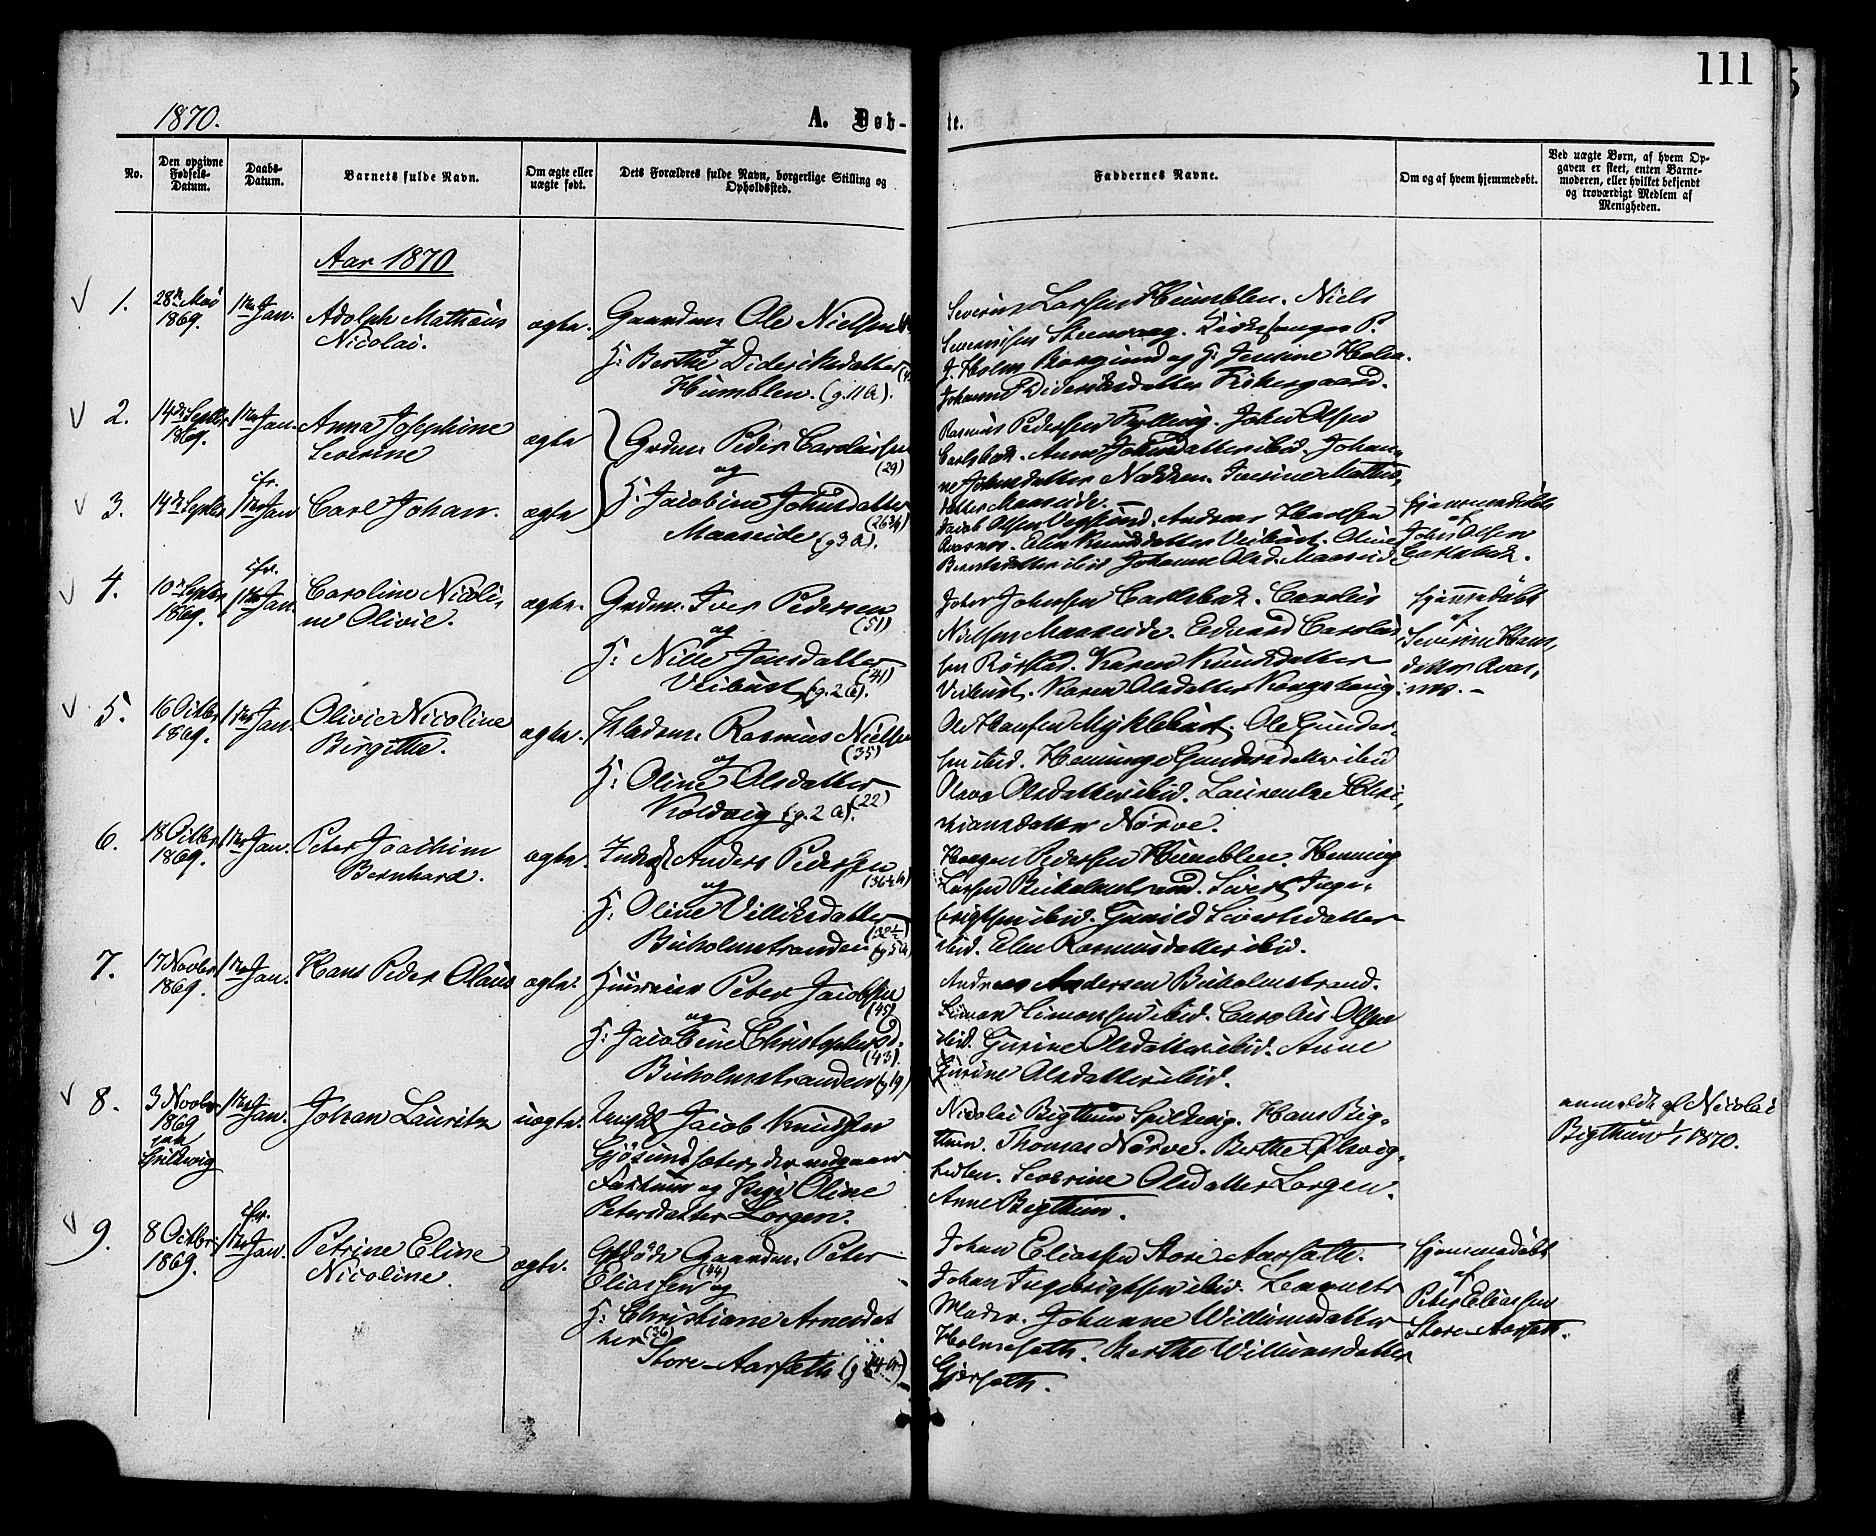 111
1870.
A. Døb-
te.
No.
Den opgivne Fødsels-Datum.
Daabs-Datum.
Barnets fulde Navn.
Om ægte eller uægte født.
Dets Forældres fulde Navn, borgerlige Stilling og Opholdssted.
Faddernes Navne.
Om og af hvem hjemmedøbt.
Ved uægte Børn, af hvem Op-
gaven er skeet, enten Barne-
moderen, eller hvilket bekjendt
og troværdigt Medlem af
Menigheden.
Aar 1870
1.
28de Mai
1869.
1ste Jan.
Adolph Mathæus
Nicolai.
ægte.
Gaardm. Ole Nielsen
og
H: Berthe Dideriksdatter
Humblen. (g. 11 A).
Severin Larsen Humblen. Niels
Severinsen Steensvaag. Kirkesanger P.
J. Holm Borgund og H: Jensine Holm.
Johanne Dideriksdatter Fiskergaard.
2.
14de Septbr
1869.
1ste Jan.
Anna Josephine
Severine
ægte
Grdm. Peder Caroliussen
(29)
og
H: Jacobine Johnsdatter
(26 3/4)
Maaseide (g 3 A).
Rasmus Pedersen Fylling. John Olsen
Carlsbak. Anne Johnsdatter ibid. Johan-
ne Johnsdatter Nakken. Iverine Mathias-
datter Maaseide.
3.
14de Septbr
cfr.
1ste Jan
Carl Johan.
ægte
Jacob Olsen Vegsund. Andreas Hansen
Aarsnes. Elen Knudsdatter Veibust. Oline
Berntsdatter ibid Johanne Olsd. Maaseide
hjemmedøbt
af
John Olsen
Carlsbak.
4.
10de Septbr
1869.
cfr.
1ste Jan
Caroline Nicoli-
ne Olivie.
ægte.
Grdm. Iver Pedersen
(51)
og
H: Nille Jonsdatter
(41)
Veibust (g. 2 A).
John Johnsen Carlsbak. Carolus
Nielsen Maaseide. Edvard Carolus-
sen Rørstad. Karen Knudsdatter
Veibust. Karen Olsdatter Kongshaug
hjemmedøbt
af
Severine Hans-
datter Aars-
nes. -
5.
16 Octbr
1869.
1ste Jan.
Olivie Nicoline
Birgithe.
ægte.
Pladsm. Rasmus Nielsen
(35)
og
H: Oline Olsdatter
(22)
Koldvig (g. 2 A).
Ole Hansen Myklebust. Ole Gunder-
sen ibid. Henninge Gundersdatter ibid
Olava Olsdatter ibid. Laurentse Chri-
stiansdatter Nørve.
6.
18 Octbr
1869.
1ste Jan.
Peter Joachim
Bernhard.
ægte.
Inderst Anders Pedersen
og
H: Oline Villiksdatter
Buholmstranden (g 5 A)
Jørgen Pedersen Humblen. Henning
Larsen Buholmstrand. Sivert Inge-
brigtsen ibid. Gunild Sivertsdatter
ibid. Elen Rasmusdatter ibid.
7.
17 Novbr
1869.
1ste Jan.
Hans Peder Olaus
ægte.
Huusmand Peter Jacobsen
(45)
og
H: Jacobine Christophersd.
(43).
Buholmstranden (g 19)
Andreas Andersen Buholmstrand.
Simon Simonsen ibid. Carolus Olsen
ibid. Gurine Olsdatter ibid. Anne
Gurine Olsdatter ibid.
8.
3 Novbr
1869
paa
Spildevig
1ste Jan.
Johan Lauritz
uægte.
Ungkl Jacob Knudsen
Gjøsundsæter, der nedgaaer
Faxtum og Pige Oline
Petersdatter Lorgen.
Nicolai Bigthun Spildevig. Hans Big-
thun. Thomas Nørve. Berthe
Severine Olsdatter Lorgen.
Anne Bigthun.
anmeldt af Nicolai
Bigthun 1/1 1870.
9.
8 Octbr
1869.
cfr.
1ste Jan.
Petrine Eline
Nicoline.
ægte.
Afdøde Gaardm. Peter
Eliassen (44) og
H: Christiane Arnesdat
ter (36)
Store-Aarsæth
Johan Eliassen Store Aarsæth.
Johan Ingebrigtsen ibid. Barnets
Moder. Johanne Williumsdatter
Holmesæth. Berthe Williumsdatter
Gjærsæth.
hjemmedøbt
af
Peter Eliassen
Store-Aarsæth.